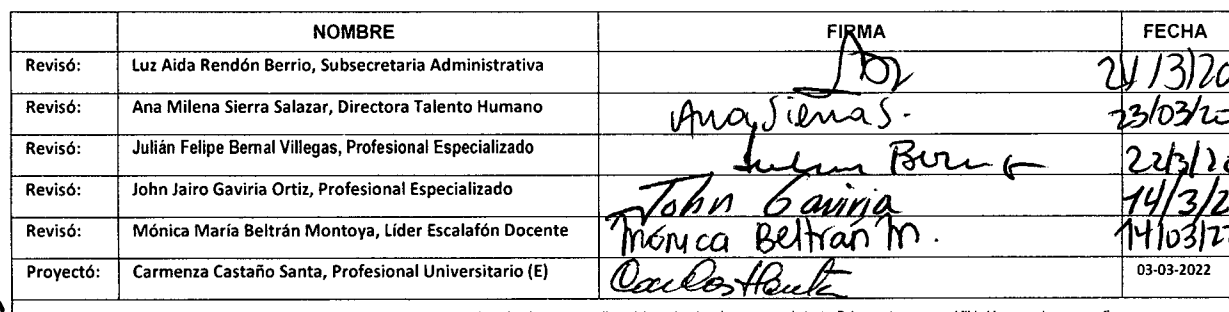 NOMBRE FIRMA FECHA
Revisó: Luz Aida Rendón Berrio, Subsecretaria Administrativa
Revisó: Ana Milena Sierra Salazar, Directora Talento Humano Ana Sierra S. 23/03/20
Revisó: Julián Felipe Bernal Villegas, Profesional Especializado 22/3/20
Revisó: John Jairo Gaviria Ortiz, Profesional Especializado John Gaviria 14/3/2
Revisó: Mónica María Beltrán Montoya, Líder Escalafón Docente Mónica Beltrán M. 14/03/2
Proyectó: Carmenza Castaño Santa, Profesional Universitario (E) 03-03-2022